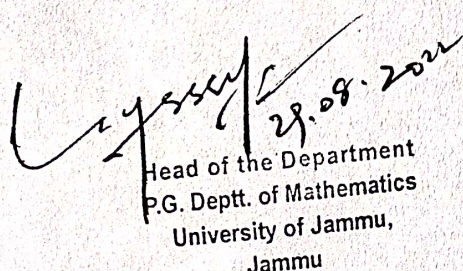 29.08.2022
Head of the Department
P.G. Deptt. of Mathematics
University of Jammu,
Jammu